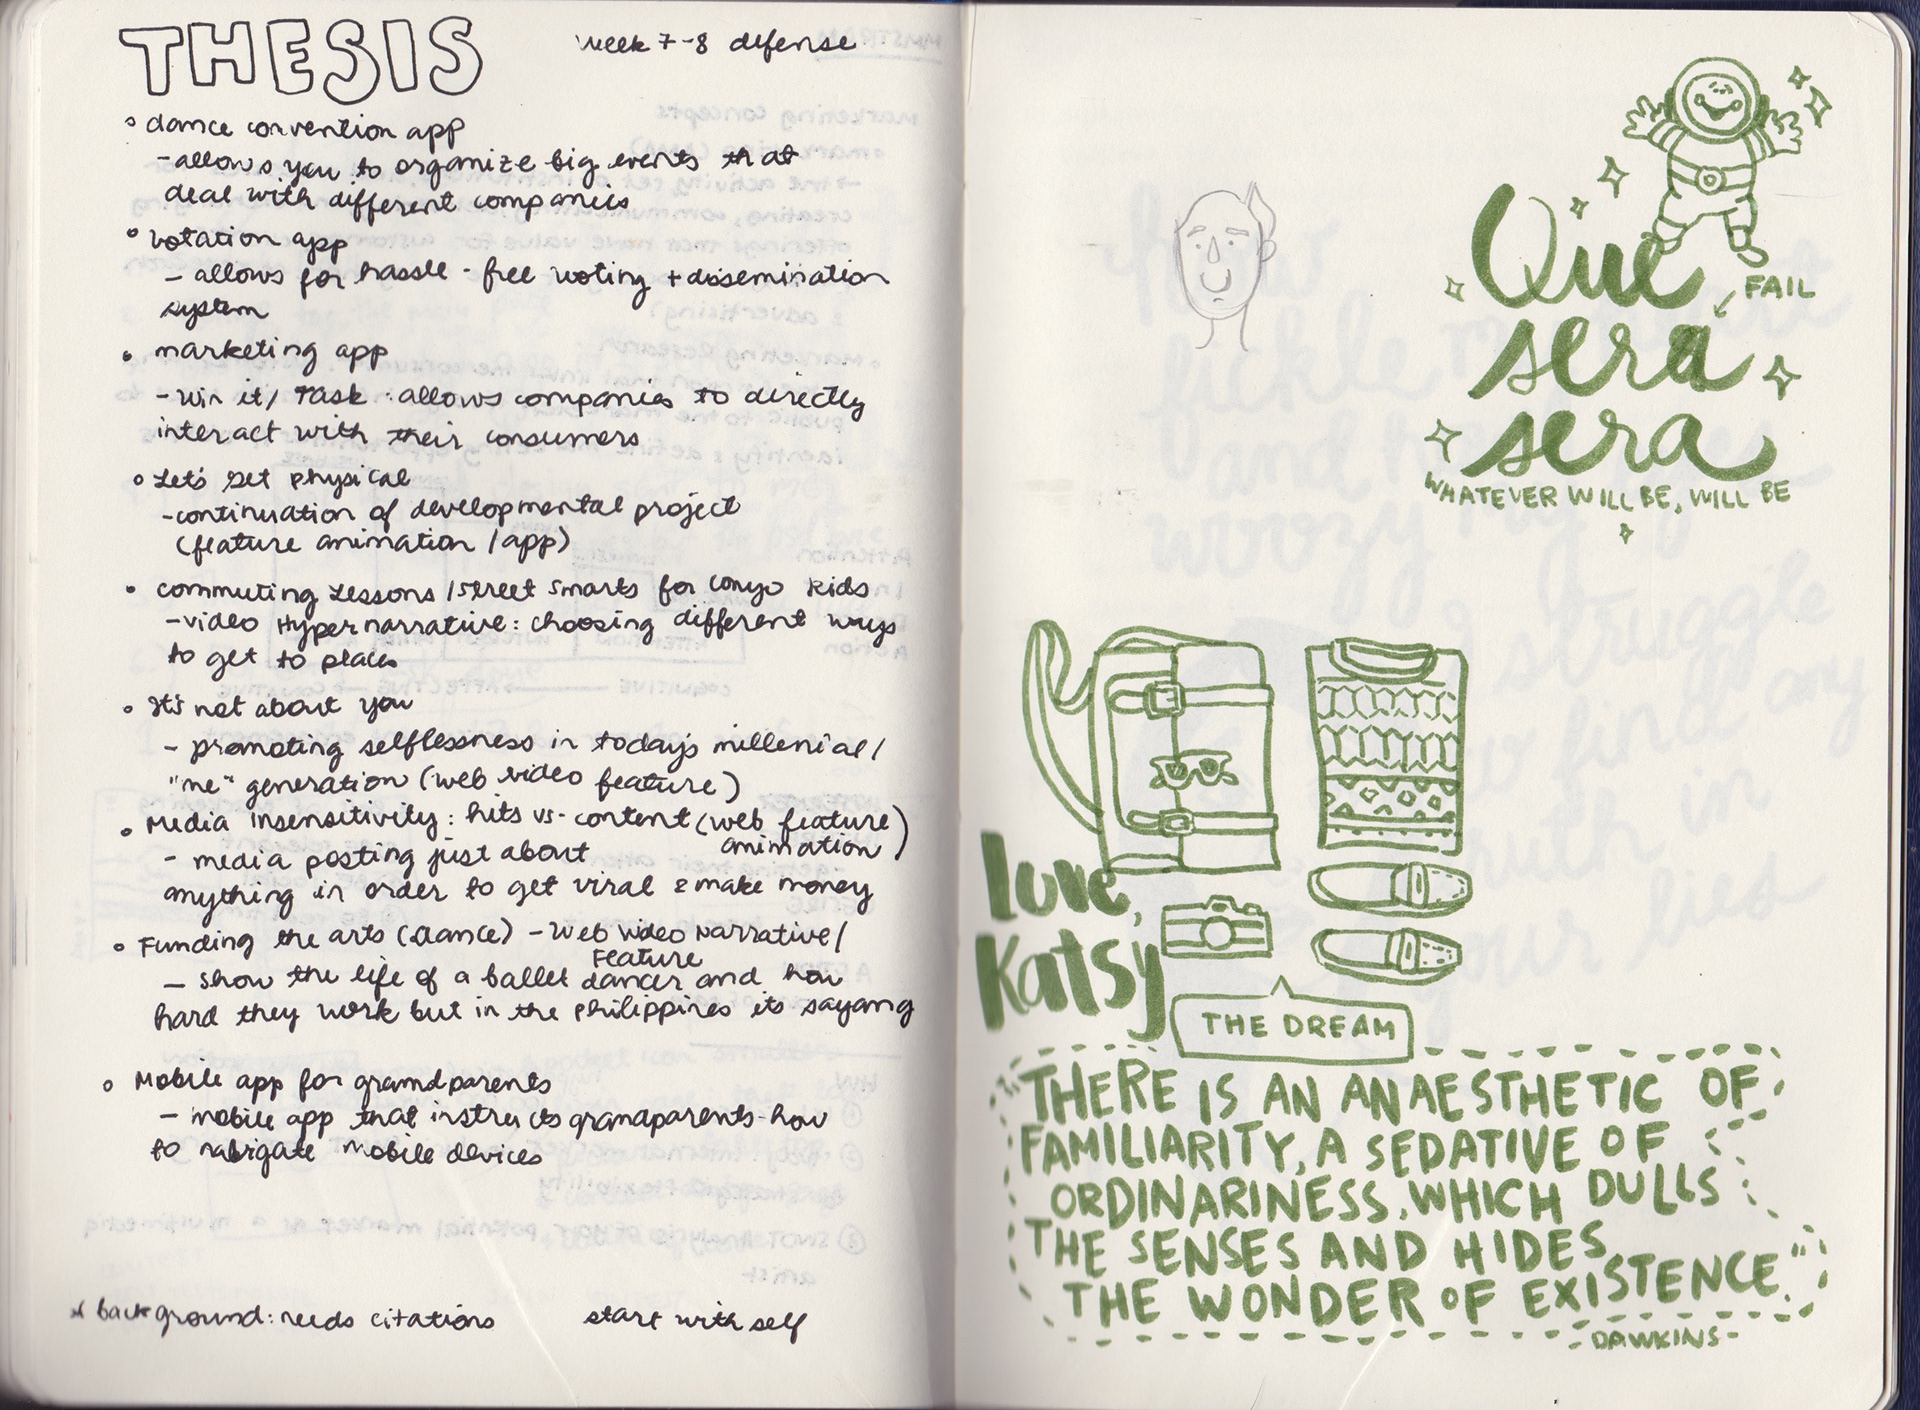 THESIS
week 7-8 defense
dance convention app
- allows you to organize big events that
deal with different companies
votation app
- allows for hassle-free voting + dissemination
system
marketing app
- Win it / Task : allows companies to directly
interact with their consumers
Let's get physical
- continuation of developmental project
(feature animation / app)
commuting Lessons / street smarts for conyo kids
- video Hypernarrative: choosing different ways
to get to places
It's not about you
- promoting selflessness in today's millenial /
"me" generation (web video feature)
Media insensitivity : hits vs. content (web feature
animation)
- media posting just about
anything in order to get viral & make money
Funding the arts (Dance) - Web video Narrative /
Feature
- show the life of a ballet dancer and how
hard they work but in the philippines its sayang
Mobile app for grandparents
- mobile app that instructs grandparents how
to navigate mobile devices
* background: needs citations
start with self
Que
FAIL
sera
sera
WHATEVER WILL BE, WILL BE
love,
Katsy
THE DREAM
THERE IS AN ANAESTHETIC OF
FAMILIARITY, A SEDATIVE OF
ORDINARINESS, WHICH DULLS
THE SENSES AND HIDES
THE WONDER OF EXISTENCE."
- DAWKINS -